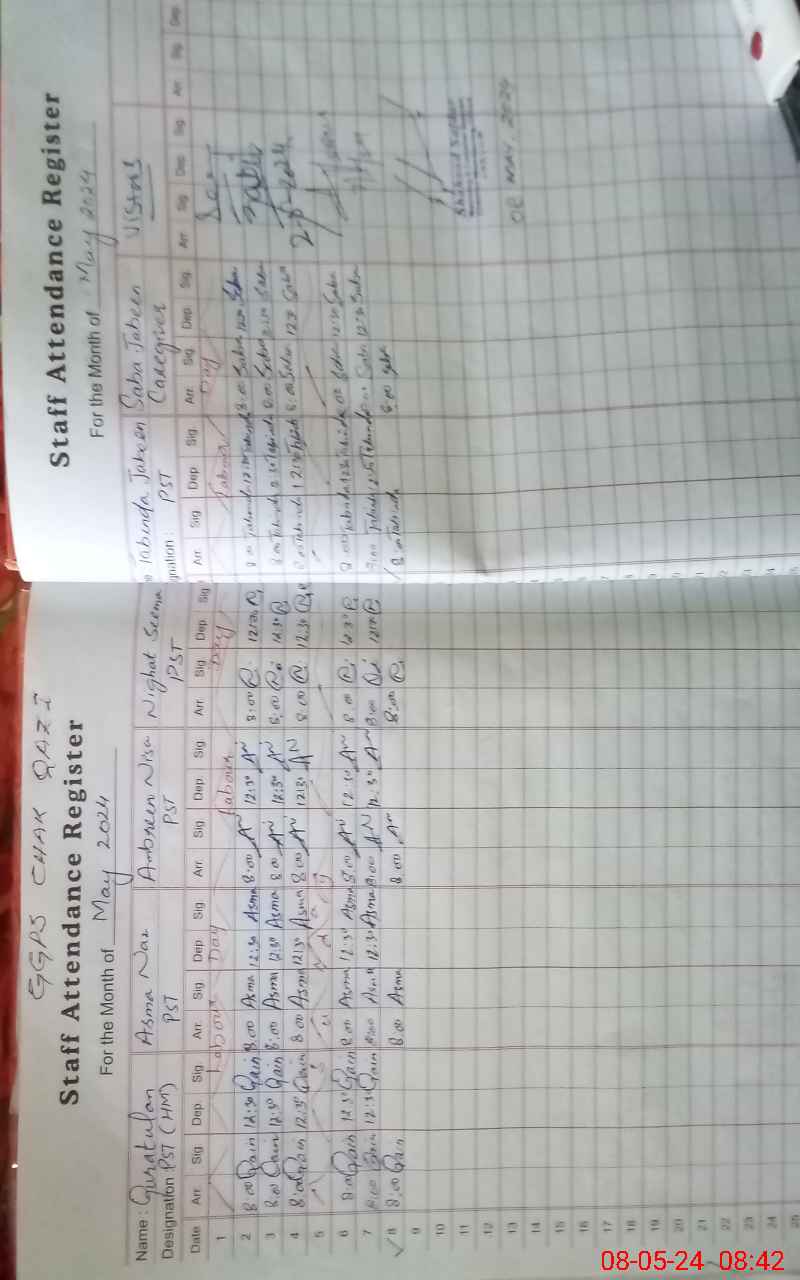 GGPS CHAK QAZI
Staff Attendance Register
For the Month of May 2024
Name: Quratulan
Asma Naz
Ambreen Nisa
Nighat Seema
Designation: PST (HM)
PST
PST
PST
Date Arr Sig Dep. Sig Arr. Sig Dep. Sig. Arr. Sig Dep. Sig Arr. Sig Dep. Sig
1 Labour Day Labour Day
2 8:00 Qain 12:30 Qain 8:00 Asma 12:30 Asma 8:00 AN 12:30 AN 8:00 12:30
3 8:00 Qain 12:30 Qain 8:00 Asma 12:30 Asma 8:00 AN 12:30 AN 8:00 12:30
4 8:00 Qain 12:30 Qain 8:00 Asma 12:30 Asma 8:00 AN 12:30 AN 8:00 12:30
5
6 8:00 Qain 12:30 Qain 8:00 Asma 12:30 Asma 8:00 AN 12:30 AN 8:00 12:30
7 8:00 Qain 12:30 Qain 8:00 Asma 12:30 Asma 8:00 AN 12:30 AN 8:00 12:30
8 8:00 Qain 8:00 Asma 8:00 AN 8:00
9
10
11
12
13
14
15
16
17
18
19
20
21
22
23
24
25
Staff Attendance Register
For the Month of May 2024
Tabinda Jabeen
Saba Jabeen
Visitors
PST
Caregiver
Arr. Sig Dep Sig. Arr. Sig Dep. Sig. Arr. Sig. Dep. Sig. Arr Sig. Dep.
Labour Day
8:00 Tabinda 12:30 Tabinda 8:00 Saba 12:30 Saba
8:00 Tabinda 12:30 Tabinda 8:00 Saba 12:30 Saba
8:00 Tabinda 12:30 Tabinda 8:00 Saba 12:30 Saba
8:00 Tabinda 12:30 Tabinda 8:00 Saba 12:30 Saba
8:00 Tabinda 12:30 Tabinda 8:00 Saba 12:30 Saba
8:00 Tabinda 8:00 Saba
2-5-2024
08 MAY, 2024
08-05-24 08:42